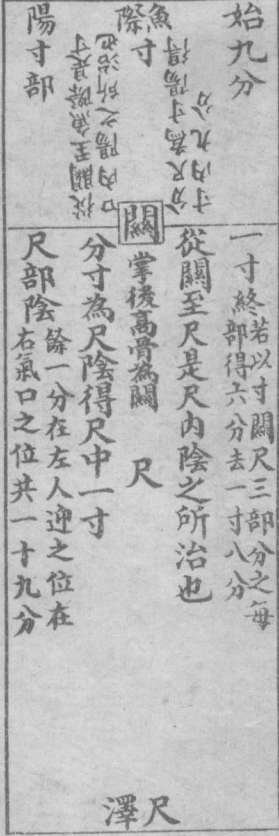 始九分
分尺為寸陽得
寸內九分
魚際
寸
從關至魚際是寸
口內陽之所治也
陽寸部
關
一寸終
若以寸關尺三部分之每
部得六分去一寸八分
從關至尺是尺內陰之所治也
掌後高骨為關
尺
分寸為尺陰得尺中一寸
尺部陰
餘一分在左人迎之位在
右氣口之位共一十九分
尺澤